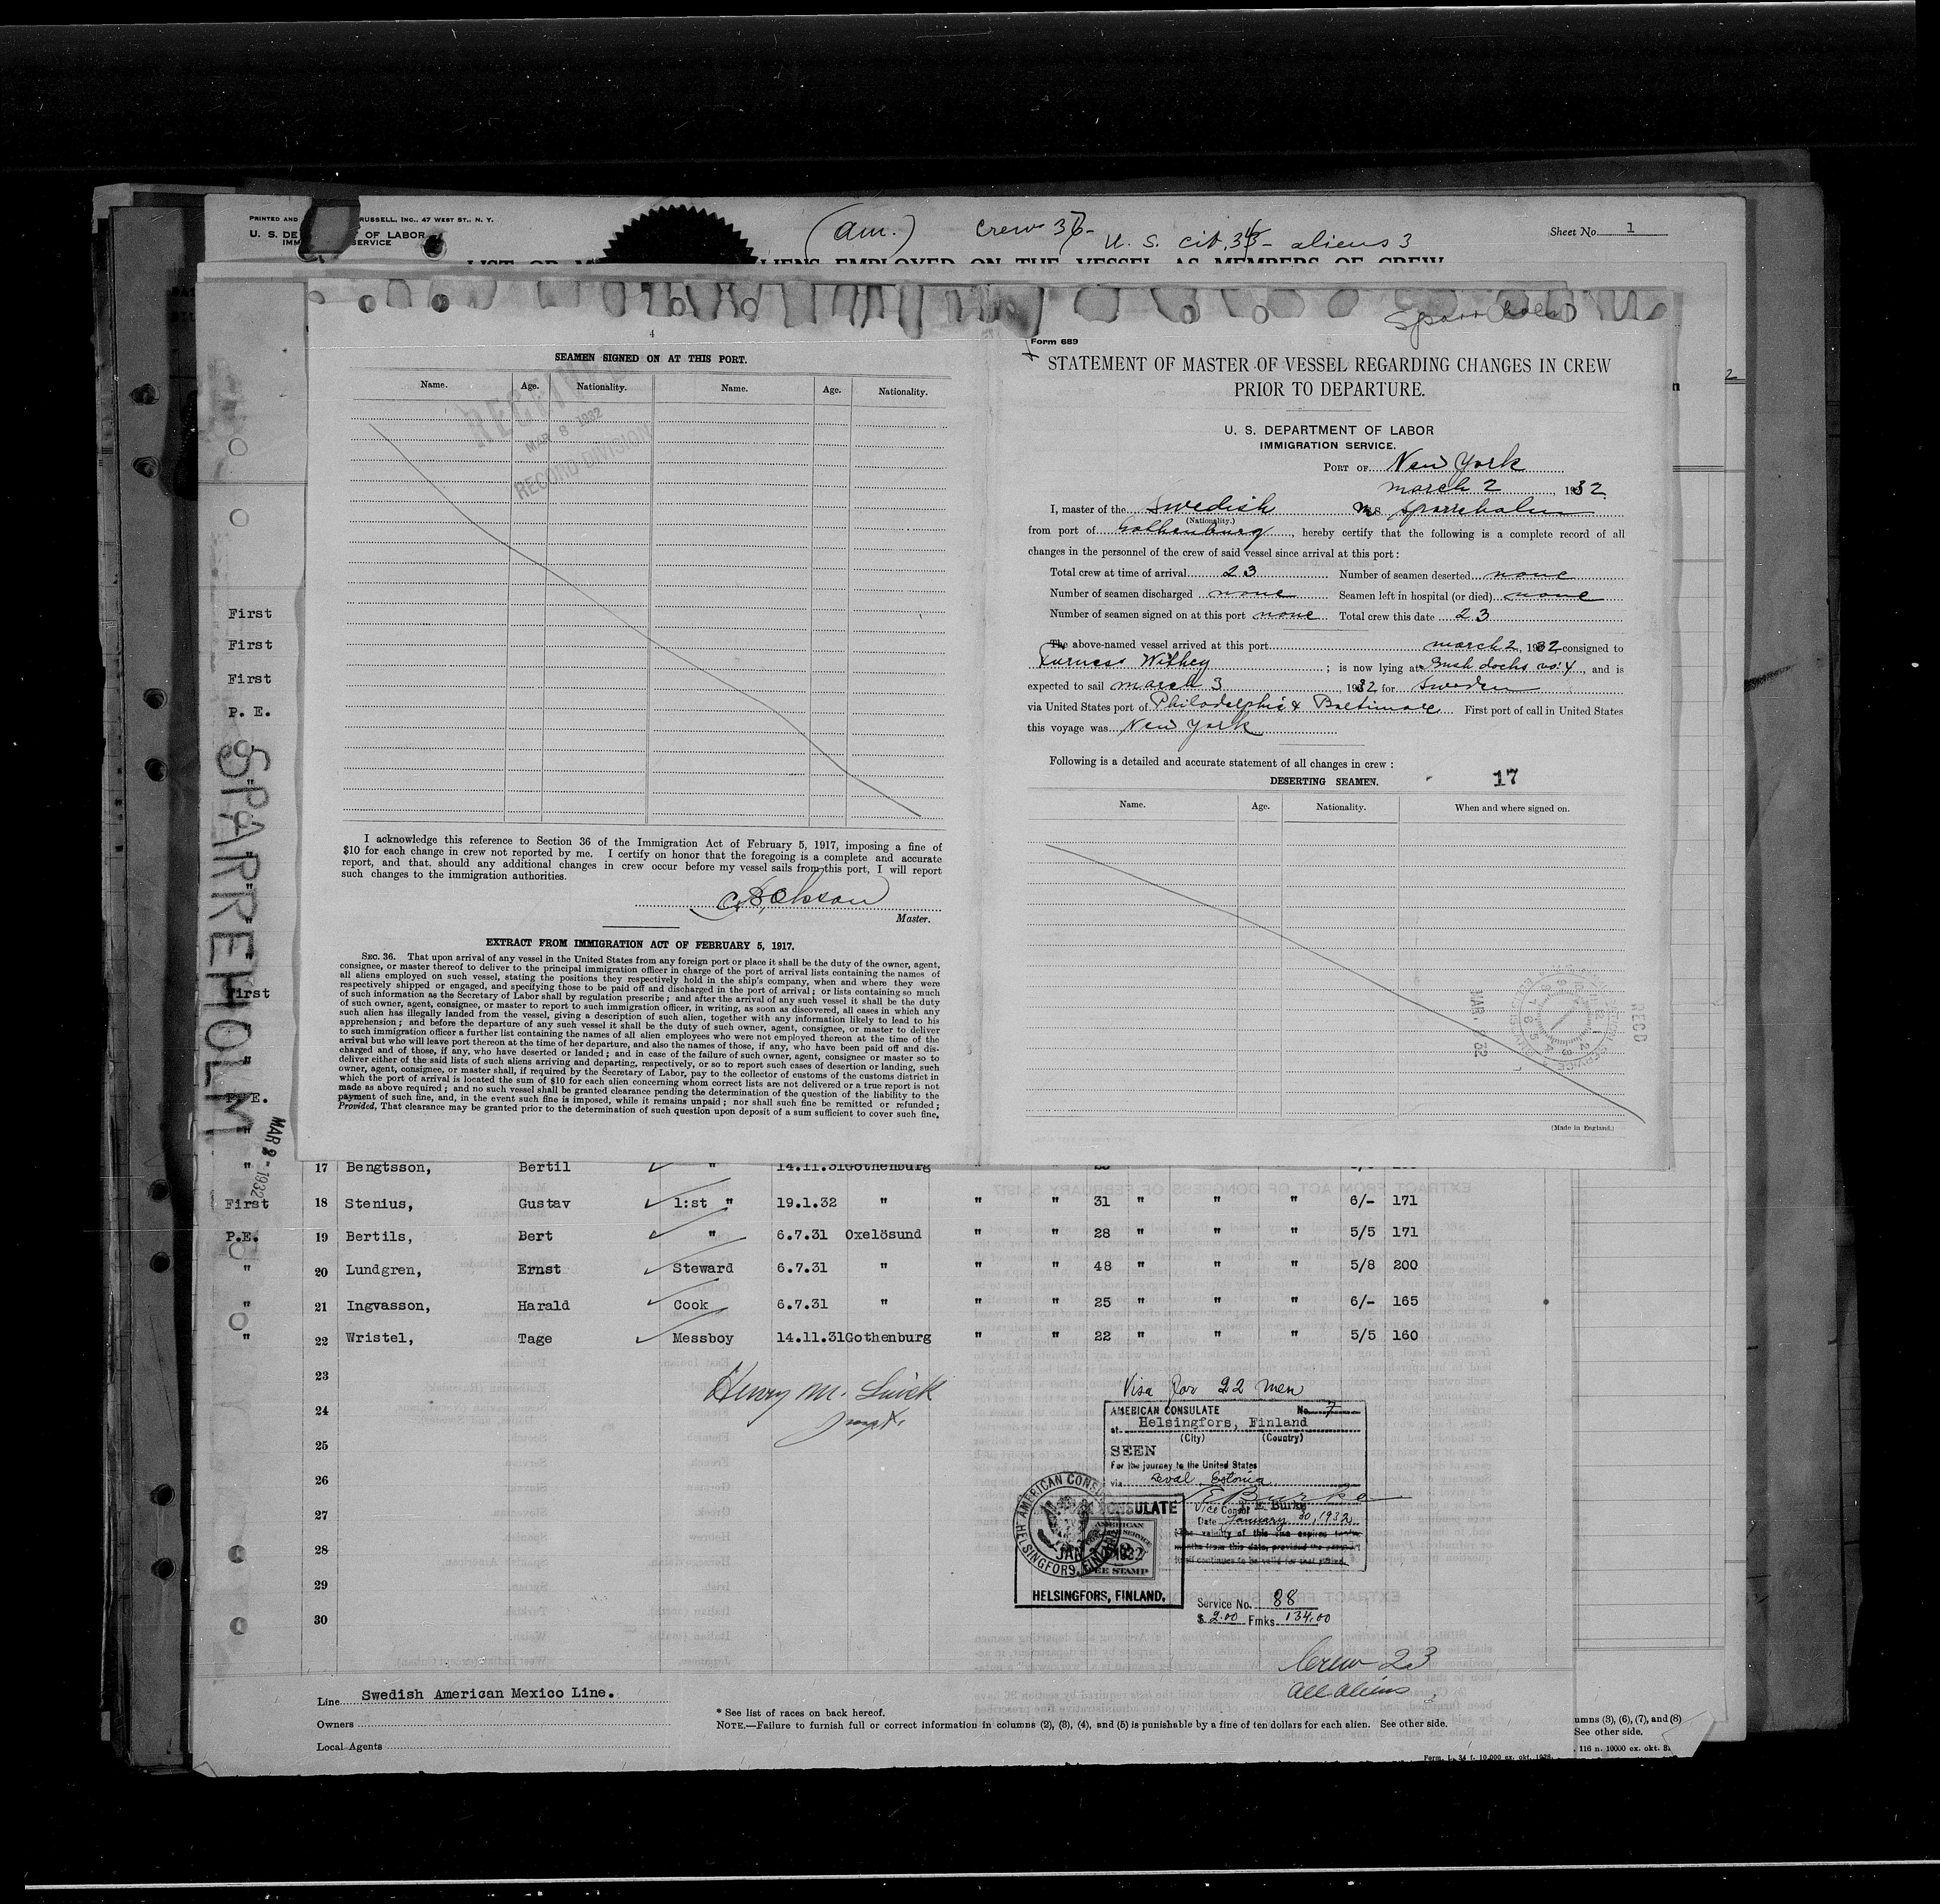 PRINTED AND
RUSSELL, INC., 47 WEST ST., N. Y.
U. S. DE OF LABOR
IMM SERVICE
(Am.) crew 36-
U. S. cit. 33- aliens 3
Sheet No. 1
LIENS EMPLOYED ON THE VESSEL AS MEMBERS OF CREW
4
SEAMEN SIGNED ON AT THIS PORT.
Name. Age. Nationality. Name. Age. Nationality.
RECEIVED
MAR 8 1932
RECORD DIVISION
I acknowledge this reference to Section 36 of the Immigration Act of February 5, 1917, imposing a fine of
$10 for each change in crew not reported by me. I certify on honor that the foregoing is a complete and accurate
report, and that, should any additional changes in crew occur before my vessel sails from this port, I will report
such changes to the immigration authorities.
Master.
EXTRACT FROM IMMIGRATION ACT OF FEBRUARY 5, 1917.
SEC. 36. That upon arrival of any vessel in the United States from any foreign port or place it shall be the duty of the owner, agent,
consignee, or master thereof to deliver to the principal immigration officer in charge of the port of arrival lists containing the names of
all aliens employed on such vessel, stating the positions they respectively hold in the ship's company, when and where they were
respectively shipped or engaged, and specifying those to be paid off and discharged in the port of arrival; or lists containing so much
of such information as the Secretary of Labor shall by regulation prescribe; and after the arrival of any such vessel it shall be the duty
of such owner, agent, consignee, or master to report to such immigration officer, in writing, as soon as discovered, all cases in which any
such alien has illegally landed from the vessel, giving a description of such alien, together with any information likely to lead to his
apprehension; and before the departure of any such vessel it shall be the duty of such owner, agent, consignee, or master to deliver
to such immigration officer a further list containing the names of all alien employees who were not employed thereon at the time of the
arrival but who will leave port thereon at the time of her departure, and also the names of those, if any, who have been paid off and dis-
charged and of those, if any, who have deserted or landed; and in case of the failure of such owner, agent, consignee or master so to
deliver either of the said lists of such aliens arriving and departing, respectively, or so to report such cases of desertion or landing, such
owner, agent, consignee, or master shall, if required by the Secretary of Labor, pay to the collector of customs of the customs district in
which the port of arrival is located the sum of $10 for each alien concerning whom correct lists are not delivered or a true report is not
made as above required; and no such vessel shall be granted clearance pending the determination of the question of the liability to the
payment of such fine, and, in the event such fine is imposed, while it remains unpaid; nor shall such fine be remitted or refunded;
Provided, That clearance may be granted prior to the determination of such question upon deposit of a sum sufficient to cover such fine,
Form 689
STATEMENT OF MASTER OF VESSEL REGARDING CHANGES IN CREW
PRIOR TO DEPARTURE.
U. S. DEPARTMENT OF LABOR
IMMIGRATION SERVICE.
PORT OF New York
march 2, 1932
I, master of the Swedish M.S. Sparreholm
(Nationality.)
from port of Gothenburg, hereby certify that the following is a complete record of all
changes in the personnel of the crew of said vessel since arrival at this port:
Total crew at time of arrival 23 Number of seamen deserted none
Number of seamen discharged none Seamen left in hospital (or died) none
Number of seamen signed on at this port none Total crew this date 23
The above-named vessel arrived at this port march 2, 1932 consigned to
Furness Withey; is now lying at Bush docks no: 4, and is
expected to sail march 3, 1932 for Sweden
via United States port of Philadelphia & Baltimore First port of call in United States
this voyage was New York
Following is a detailed and accurate statement of all changes in crew:
DESERTING SEAMEN. 17
Name. Age. Nationality. When and where signed on.
RECD
MAR. 2 32
(Made in England.)
First
First
First
P. E.
SPARREHOLM
First
P. E.
MAR 2 - 1932
" 17 Bengtsson, Bertil " 14.11.31 Gothenburg
First 18 Stenius, Gustav 1:st " 19.1.32 " " " 31 " " " 6/- 171
P.E. 19 Bertils, Bert " 6.7.31 Oxelösund " " 28 " " " 5/5 171
" 20 Lundgren, Ernst Steward 6.7.31 " " " 48 " " " 5/8 200
" 21 Ingvasson, Harald Cook 6.7.31 " " " 25 " " " 6/- 165
" 22 Wristel, Tage Messboy 14.11.31 Gothenburg " " 22 " " " 5/5 160
23
24
25
26
27
28
29
30
Visa for 22 men
AMERICAN CONSULATE No. 7
at Helsingfors, Finland
(City) (Country)
SEEN
For the journey to the United States
via Reval, Estonia
E Burke
Vice Consul E. Burke
Date January 30, 1932
The validity of this visa expires
months from this date, provided the
continues to be valid for that period.
AMERICAN CONSULATE
HELSINGFORS, FINLAND
FEE STAMP
HELSINGFORS, FINLAND.
Service No. 88
$ 2.00 Fmks 134.00
Crew 23
all aliens
Line Swedish American Mexico Line.
Owners
Local Agents
* See list of races on back hereof.
NOTE.—Failure to furnish full or correct information in columns (2), (3), (4), and (5) is punishable by a fine of ten dollars for each alien. See other side.
Form. L. 34 f. 10.000 ex. okt. 1928.
umns (3), (6), (7), and (8)
See other side.
116 n. 10000 ex. okt.